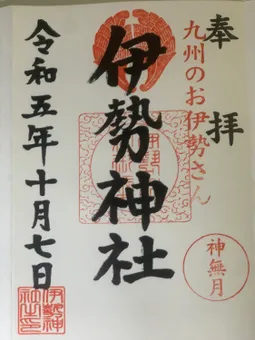 奉拝
九州のお伊勢さん
伊勢神社
神無月
令和五年十月七日
伊勢神社之印